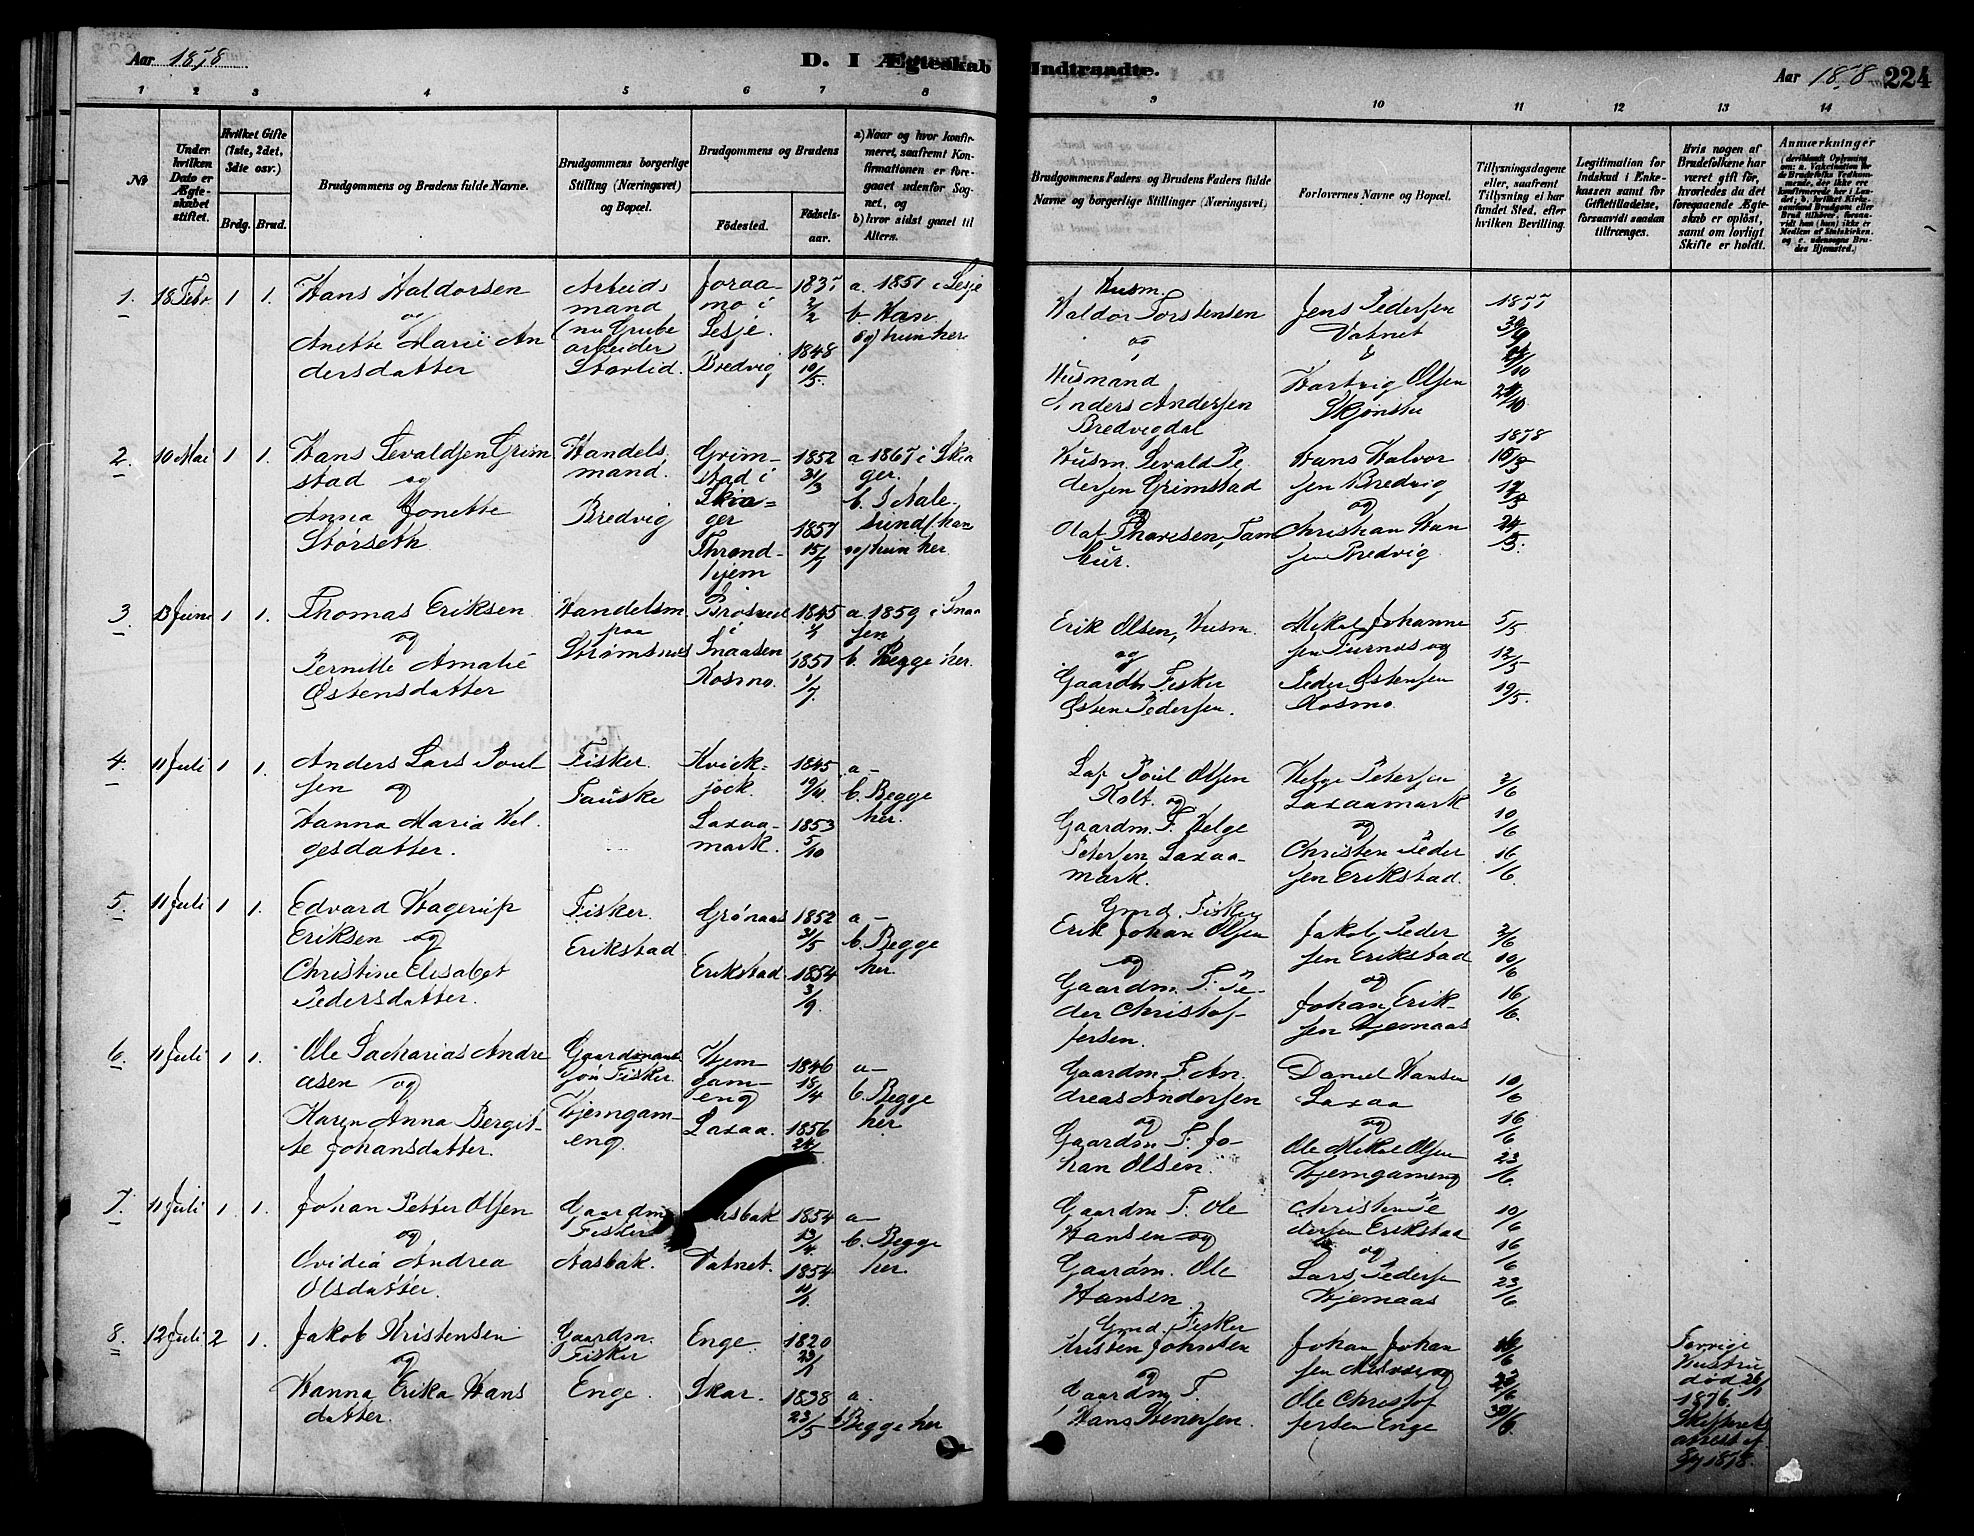 Aar 1878
D. I Ægteskab
Indtraadte.
Aar 1878
224
1 2 3 4 5 6 7 8
9 10 11 12 13 14
No
Under hvilken Dato er Ægteskabet stiftet.
Hvilket Gifte (1ste, 2det, 3die osv.)
Brdg. Brud.
Brudgommens og Brudens fulde Navne.
Brudgommens borgerlige Stilling (Næringsvei) og Bopæl.
Brudgommens og Brudens
Fødested.
Fødselsaar.
a) Naar og hvor konfirmeret, saafremt Konfirmationen er foregaaet udenfor Sognet, og
b) hvor sidst gaaet til Alters.
Brudgommens Faders og Brudens Faders fulde Navne og borgerlige Stillinger (Næringsvei)
Forlovernes Navne og Bopæl.
Tillysningsdagene eller, saafremt Tillysning ei har fundet Sted, efter hvilken Bevilling.
Legitimation for Indskud i Enkekassen samt for Giftetilladelse, forsaavidt saadan tiltrænges.
Hvis nogen af Brudefolkene har været gift før, hvorledes da det foregaaende Ægteskab er opløst, samt om lovligt Skifte er holdt.
Anmærkninger
1. 18 Febr 1 1.
Hans Haldorsen
og
Anette Marie An
dersdatter
Arbeids
mand
(nu Grube
arbeider
Storlid.
Joraa
mo i
Lesje.
Bredvig
1835
2/2
1848
10/5.
a. 1851 i Lesje
b. Han
og hun her
Husm.
Haldor Torstensen
og
Husmand
Anders Andersen
Bredvigdal
Jens Pedersen
Vatnet
&
Hartvig Olsen
Skjønstu
1877
2. 10 Mai 1 1.
Hans Sevaldsen Grim
stad og
Anna Jonette
Størseth
Handels
mand.
Bredvig
Grim-
stad i
Skia-
ger
Thrond-
hjem
1852
31/3
1857
a 1867 i Skia
ger.
b. I Aale-
sund/han
og hun her.
Husm. Sevald Pe
dersen Grimstad
og
Olaf Thoresen, Tam
bur.
Hans Halvor
sen Bredvig
og
Christian Han
sen Bredvig.
1878
3. 13 Juni 1 1.
Thomas Eriksen
og
Pernille Amalie
Østensdatter
Handelsm
paa
Strømsnes
i
Snaasen
Kosmo.
1845
1851
1/7
a. 1859 i Snaa
sen
b. Begge her.
Erik Olsen, Husm.
og
Gaardm Fisker
Østen Pedersen.
Mikal Johanne
sen Furnes og
Peder Østensen
Kosmo.
5/5
12/5
19/5
4. 11 Juli 1 1.
Anders Lars Poul
sen og
Hanna Maria Hel
gesdatter.
Fisker.
Fauske
Kvick-
jock.
Laxaa-
mark.
1845
1853
5/10
a-
b. Begge
her.
Lap Poul Olsen
Kolt. og
Gaardm. F. Helge
Petersen Laxaa-
mark.
Helge Petersen
Laxaamark
og
Christen Peder
sen Erikstad.
2/6
10/6
16/6.
5. 11 Juli 1 1.
Edvard Hagerup
Eriksen og
Christine Elisabet
Pedersdatter.
Fisker.
Erikstad
Grønaas
Erikstad
1852
31/5
1854
3/9
a-
b. Begge
her.
Gmd. Fisker
Erik Johan Olsen
og
Gaardm. F. Pe-
der Christof-
fersen.
Jakob Peder
sen Erikstad
og
Johan Erik-
sen Hjemaas
2/6
10/6
16/6.
6. 11 Juli 1 1.
Ole Sacharias Andre
asen og
Karen Anna Bergit-
te Johansdatter.
Gaardmand
son Fisker.
Hjemgam-
eng.
Hjem
gam-
eng
Laxaa.
1846
18/4
1856
a-
b. Begge
her
Gaardm F. An.
dreas Andersen
og
Gaardm F. Jo-
han Olsen.
Daniel Hansen
Laxaa
og
Ole Mikal Olsen
Hjemgameng
10/6
16/6
23/6.
7. 11 Juli 1 1.
Johan Petter Olsen
og
Ovidia Andrea
Olsdatter.
Gaardm
Fisker
Aasbak.
Aasbak
Vatnet.
1854
13/4
1854
a-
b. Begge
her.
Gaardm F. Ole
Hansen og
Gaardm. Ole
Hansen.
Christen Pe
dersen Erikstad
og
Lars Pedersen
Hjemaas
10/6
16/6
23/6
8. 12 Juli 2 1.
Jakob Kristensen
og
Hanna Erika Hans
datter.
Gaardm.
Fisker
Enge.
Enge.
Skar.
1820
1838
23/5
a.
b Begge her
Gmd. Fisker
Kristen Johnsen
og
Gaardm F.
Hans Henersen
Johan Johan
sen og
Ole Christof
fersen Enge
16/6
23/6
30/6.
Forrige
Hustru
død 26/1
1876.
1878.